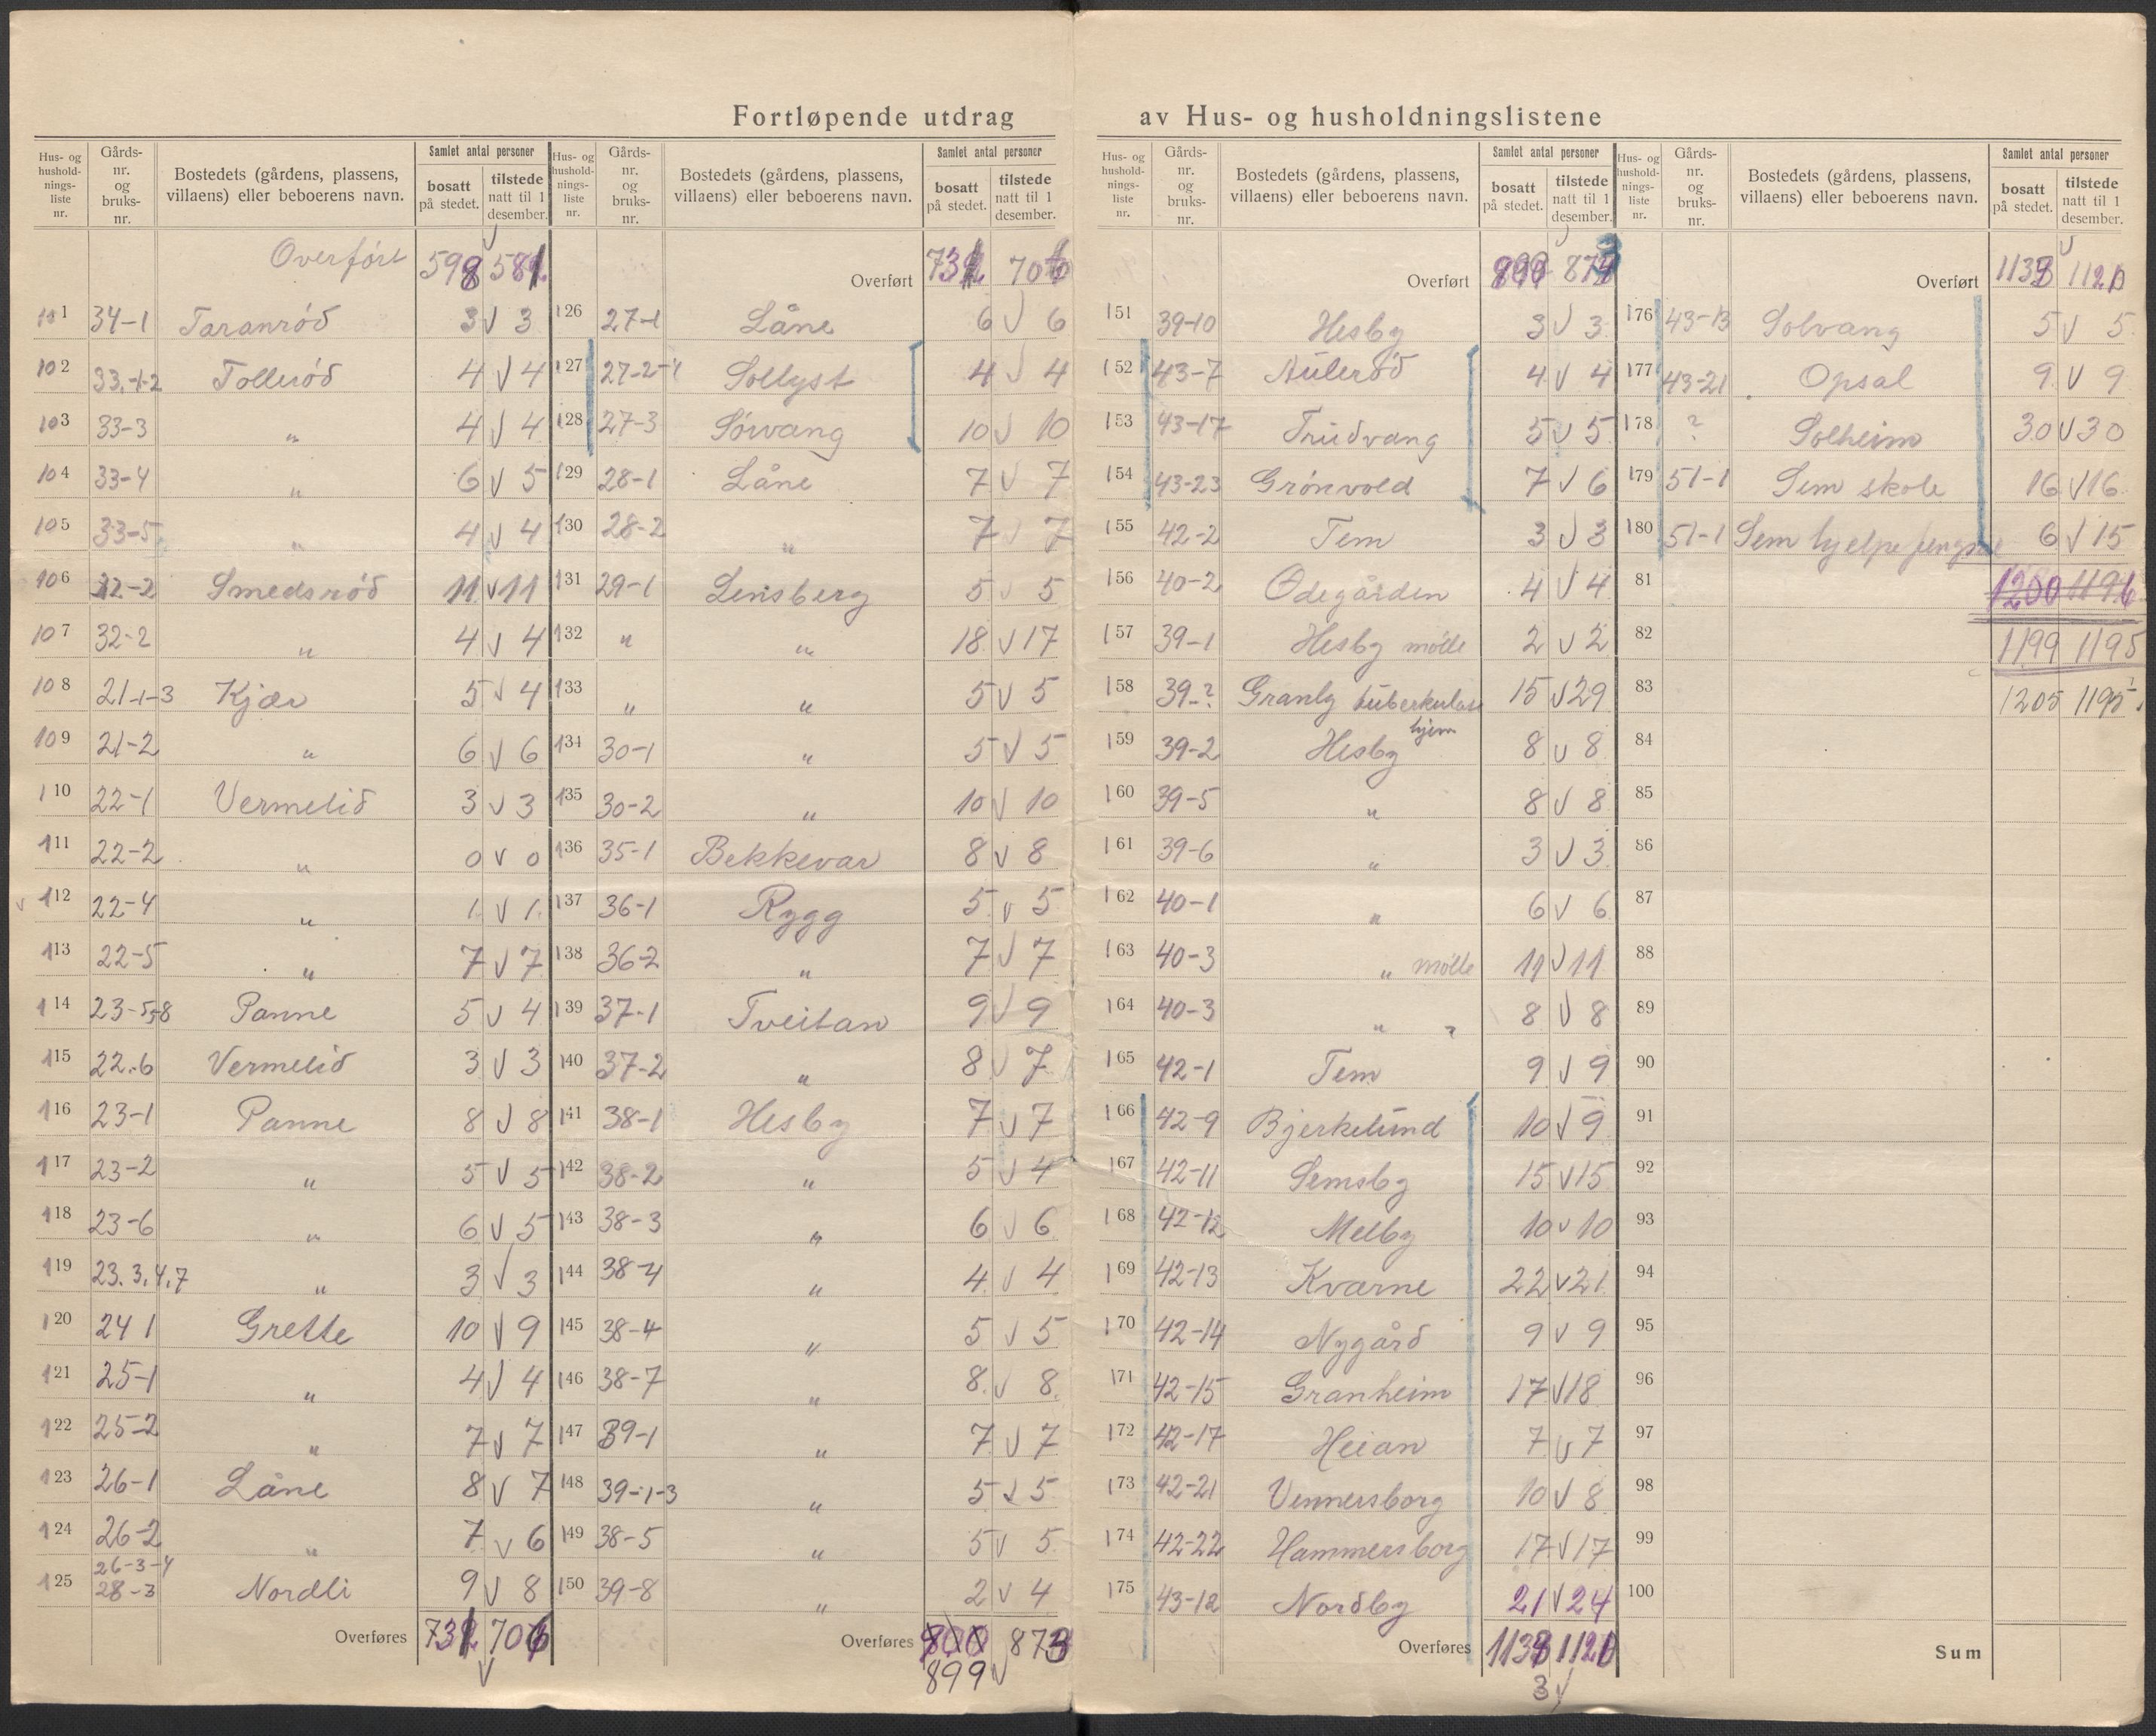 Fortløpende utdrag av Hus- og husholdningslistene
Hus- og hushold-nings-liste nr. Gårds-nr. og bruks-nr. Bostedets (gårdens, plassens, villaens) eller beboerens navn. Samlet antal personer bosatt på stedet. tilstede natt til 1 desember.
Overført
101 34-1 Taranrød 3 v 3
102 33.-1-2 Tollerød 4 v 4
103 33-3 " 4 v 4
104 33-4 " 6 v 5
105 33-5 " 4 v 4
106 32-2 Smedsrød 11 v 11
107 32-2 " 4 v 4
108 21-1-3 Kjær 5 v 4
109 21-2 " 6 v 6
110 22-1 Vermelid 3 v 3
111 22-2 " 0 v 0
v 112 22-4 " 1 v 1
113 22-5 " 7 v 7
114 23-5-8 Panne 5 v 4
115 22.6 Vermelid 3 v 3
116 23-1 Panne 8 v 8
117 23-2 " 5 v 5
118 23-6 " 6 v 5
119 23.3.4.7 " 3 v 3
120 24 1 Grette 10 v 9
121 25-1 " 4 v 4
122 25-2 " 7 v 7
123 26-1 Låne 8 v 7
124 26-2 " 7 v 6
26-3-4
125 28-3 Nordli 9 v 8
Overføres
v
Hus- og hushold-nings-liste nr. Gårds-nr. og bruks-nr. Bostedets (gårdens, plassens, villaens) eller beboerens navn. Samlet antal personer bosatt på stedet. tilstede natt til 1 desember.
Overført
126 27-1 Låne 6 v 6
127 27-2-4 Sollyst 4 v 4
128 27-3 Sørvang 10 v 10
129 28-1 Låne 7 v 7
130 28-2 " 7 v 7
131 29-1 Lensberg 5 v 5
132 " " 18 v 17
133 " " 5 v 5
134 30-1 " 5 v 5
135 30-2 " 10 v 10
136 35-1 Bekkevar 8 v 8
137 36-1 Rygg 5 v 5
138 36-2 " 7 v 7
139 37-1 Tveitan 9 v 9
140 37-2 " 8 v 7
141 38-1 Hesby 7 v 7
142 38-2 " 5 v 4
143 38-3 " 6 v 6
144 38-4 " 4 v 4
145 38-4 " 5 v 5
146 38-7 " 8 v 8
147 39-1 " 7 v 7
148 39-1-3 " 5 v 5
149 38-5 " 5 v 5
150 39-8 " 2 v 4
Overføres 900 873
899 v
Hus- og hushold-nings-liste nr. Gårds-nr. og bruks-nr. Bostedets (gårdens, plassens, villaens) eller beboerens navn. Samlet antal personer bosatt på stedet. tilstede natt til 1 desember.
Overført
151 39-10 Hesby 3 v 3
152 43-7 Aulerød 4 v 4
153 43-17 Trudvang 5 v 5
154 43-23 Grønvold 7 v 6
155 42-2 Tem 3 v 3
156 40-2 Ødegården 4 v 4
157 39-1 Hesby mølle 2 v 2
158 39-? Granly tuberkulose 15 v 29
hjem
159 39-2 Hesby 8 v 8
160 39-5 " 8 v 8
161 39-6 " 3 v 3
162 40-1 " 6 v 6
163 40-3 " mølle 11 v 11
164 40-3 " " 8 v 8
165 42-1 Tem 9 v 9
166 42-9 Bjerkelund 10 v 9
167 42-11 Semsby 15 v 15
168 42-12 Melby 10 v 10
169 42-13 Kvarne 22 v 21
170 42-14 Nygård 9 v 9
171 42-15 Granheim 17 v 18
172 42-17 Heian 7 v 7
173 42-21 Vennersborg 10 v 8
174 42-22 Hammersborg 17 v 17
175 43-12 Nordby 21 v 24
Overføres
3 v
Hus- og hushold-nings-liste nr. Gårds-nr. og bruks-nr. Bostedets (gårdens, plassens, villaens) eller beboerens navn. Samlet antal personer bosatt på stedet. tilstede natt til 1 desember.
Overført
176 43-13 Solvang 5 v 5
177 43-21 Opsal 9 v 9
178 ? Solheim 30 v 30
179 51-1 Sem skole 16 v 16
180 51-1 Sem hjelpefengsel 6 v 15
81 1200 1196
82 1199 1195
83 1205 1195
84
85
86
87
88
89
90
91
92
93
94
95
96
97
98
99
100
Sum